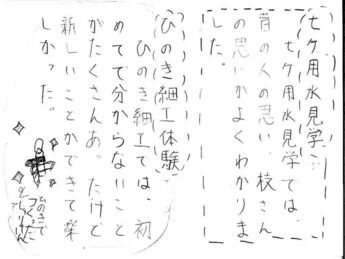 七ヶ用水見学
七ヶ用水見学では、
昔の人の思い、枝さん
の思いがよくわかりま
した。
ひのき細工体験
ひのき細工では、初
めてで分からないこと
がたくさんあ。たけど
新しいことができて楽
しかった。
ひのきで
つくった